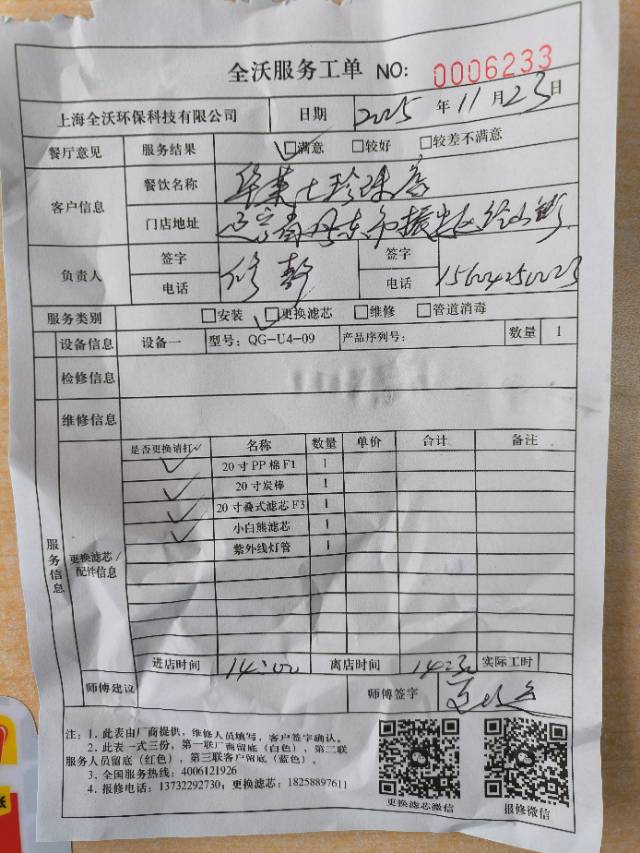 全沃服务工单 NO: 0006233
上海全沃环保科技有限公司 日期 2025 年 11 月 23 日
餐厅意见 服务结果 ☑满意 □较好 □较差不满意
客户信息 餐饮名称 华莱士珍珠店
门店地址 辽宁省丹东市振安区
负责人 签字 签字
电话 电话 15604250023
服务类别 □安装 ☑更换滤芯 □维修 □管道消毒
设备信息 设备一 型号: QG-U4-09 产品序列号: 数量 1
检修信息
维修信息
服务信息 更换滤芯/配件信息
是否更换请打✓ 名称 数量 单价 合计 备注
✓ 20寸PP棉F1 1
✓ 20寸炭棒 1
✓ 20寸叠式滤芯F3 1
✓ 小白熊滤芯 1
紫外线灯管 1
进店时间 14:00 离店时间 14:30 实际工时
师傅建议 师傅签字
注: 1. 此表由厂商提供, 维修人员填写, 客户签字确认。
2. 此表一式三份, 第一联厂商留底 (白色), 第二联
服务人员留底 (红色), 第三联客户留底 (蓝色)。
3. 全国服务热线: 4006121926
4. 报修电话: 13732292730; 更换滤芯: 18258897611
更换滤芯微信 报修微信